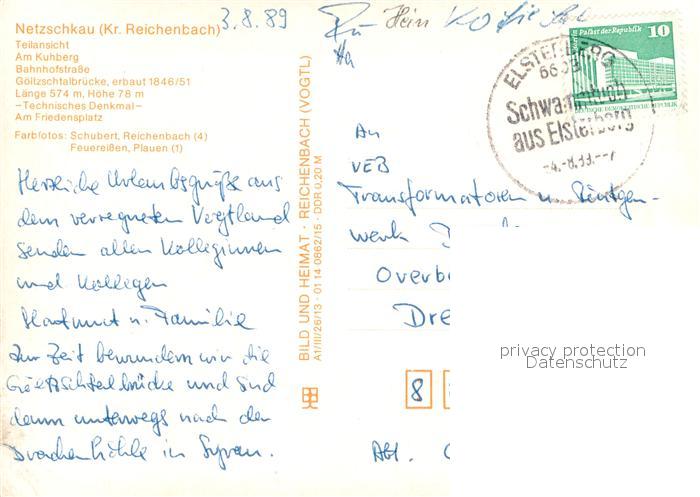 Netzschkau (Kr. Reichenbach)
3.8.89
Teilansicht
Am Kuhberg
Bahnhofstraße
Göltzschtalbrücke, erbaut 1846/51
Länge 574 m, Höhe 78 m
—Technisches Denkmal—
Am Friedensplatz
Farbfotos: Schubert, Reichenbach (4)
Feuereißen, Plauen (1)
Herzliche Urlaubsgrüße aus
dem verregneten Vogtland
senden allen Kolleginnen
und Kollegen
Hartmut u. Familie
Zur Zeit bewundern wir die
Göltzschtalbrücke und sind
dann unterwegs nach der
Drachenhöhle in Syrau.
BILD UND HEIMAT · REICHENBACH (VOGTL)
A1/III/26/13 · 01 14 0862/15 · DDR 0,20 M
Palast der Republik
10
DEUTSCHE DEMOKRATISCHE REPUBLIK
ELSTERBERG
Schwammtuch
aus Elsterberg
An
VEB
Transformatoren u. Röntgen-
werk
Overb
Dre
8
Abt.
privacy protection
Datenschutz